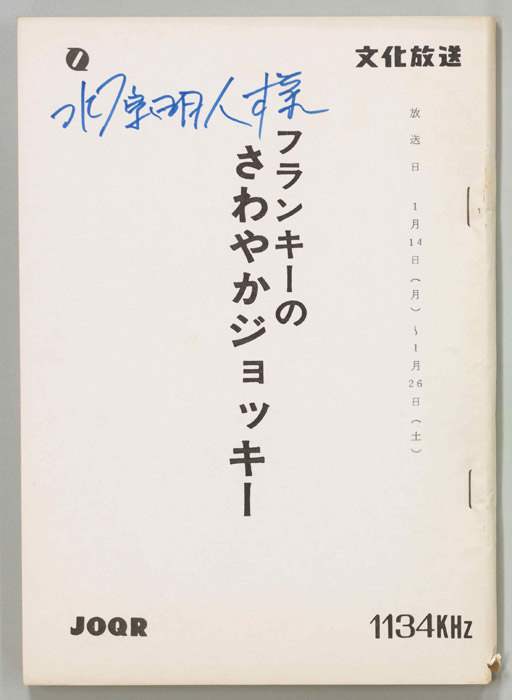 文化放送
水原明人様
放送日 1月14日(月)~1月26日(土)
フランキーの
さわやかジョッキー
JOQR
1134KHz